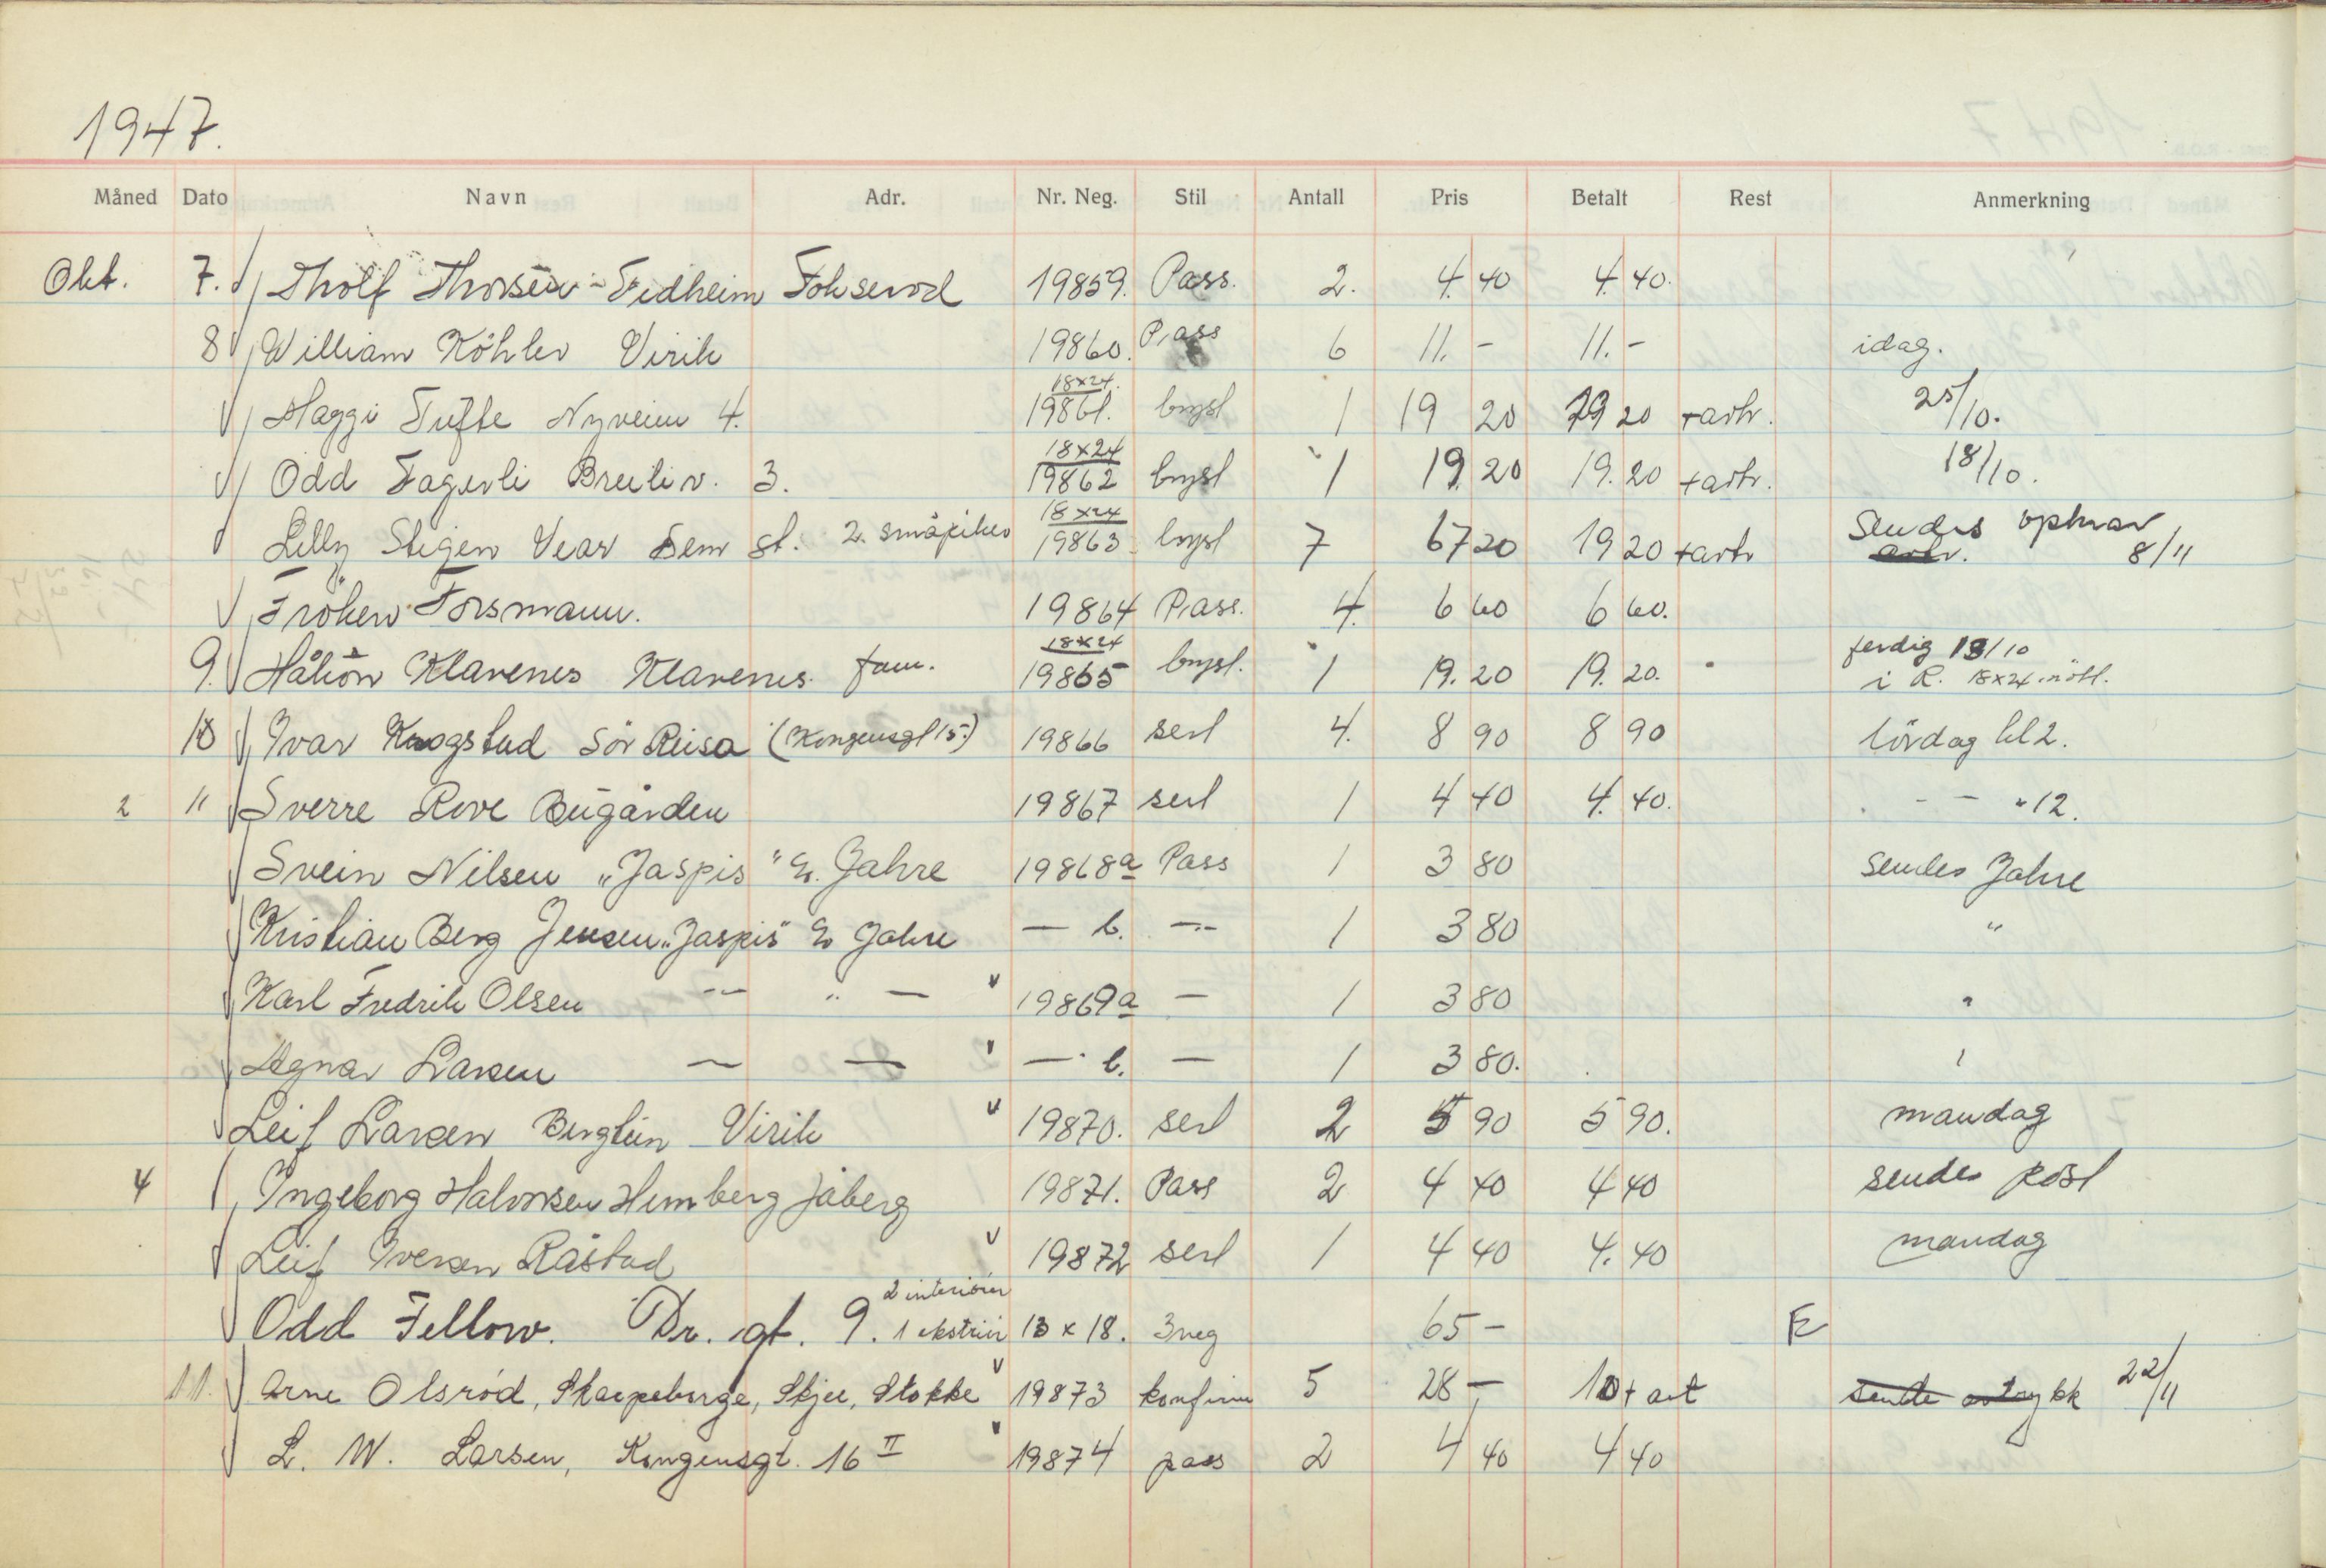 1947.
Måned Dato Navn Adr. Nr. Neg. Stil Antall Pris Betalt Rest Anmerkning
Okt. 7. Tholf Thorsen - Fidheim Fokserød 19859. Pass. 2. 4. 40 4. 40.
8 William Köhler Virik 19860. Pass 6 11. - 11. - idag.
18x24.
Haggi Tufte Nyveien 4. 19861. brysl 1 19 20 19 20 + avtr. 25/10.
18x24
Odd Fagerli Breiliv. 3. 19862 brysl 1 19. 20 19. 20 + avtr. 18/10.
18x24
Lilly Stigen Vear Sem st. 2. småpiker 19863 brysl 7 67 20 19 20 + avtr Sendes opkrav 8/11
Fröken Forsmann. 19864 Pass. 4. 6 60 6 60.
18x24
9. Håkon Klavenes Klavenes fam. 19865 brysl. 1 19. 20 19. 20. ferdig 18/10
i R. 18x24
10 Ivar Krogstad Sör Reisa (Kongensgt 15.) 19866 serl 4. 8 90 8 90 lördag kl 2.
2 11 Sverre Rove Bugården 19867 serl 1 4 40 4. 40. - - " 12.
Svein Nilsen „Jaspis" A. Jahre 19868a Pass 1 3 80 Sendes Jahre
Kristian Berg Jensen „Jaspis" A Jahre — b. — 1 3 80 "
Karl Fredrik Olsen — " — 19869a — 1 3 80 "
Agnar Larsen — — — b. — 1 3 80. "
Leif Larsen Berglun Virik 19870. serl 2 5 90 5 90. mandag
4 Ingeborg Halvorsen Himberg Jåberg 19871. Pass 2 4 40 4 40 sendes Post
Leif Iversen Råstad 19872 serl 1 4 40 4. 40 mandag
2 interiör
Odd Fellow. Dr. gt. 9. 1 eksteriör 13 x 18. 3 neg 65 - E
11. Arne Olsröd, Skarpeborge, Skjee, Stokke 19873 konfirm 5 28 - 10 + avt sendte avtrykk 22/11
L. W. Larsen, Kongensgt. 16 II 19874 pass 2 4 40 4 40